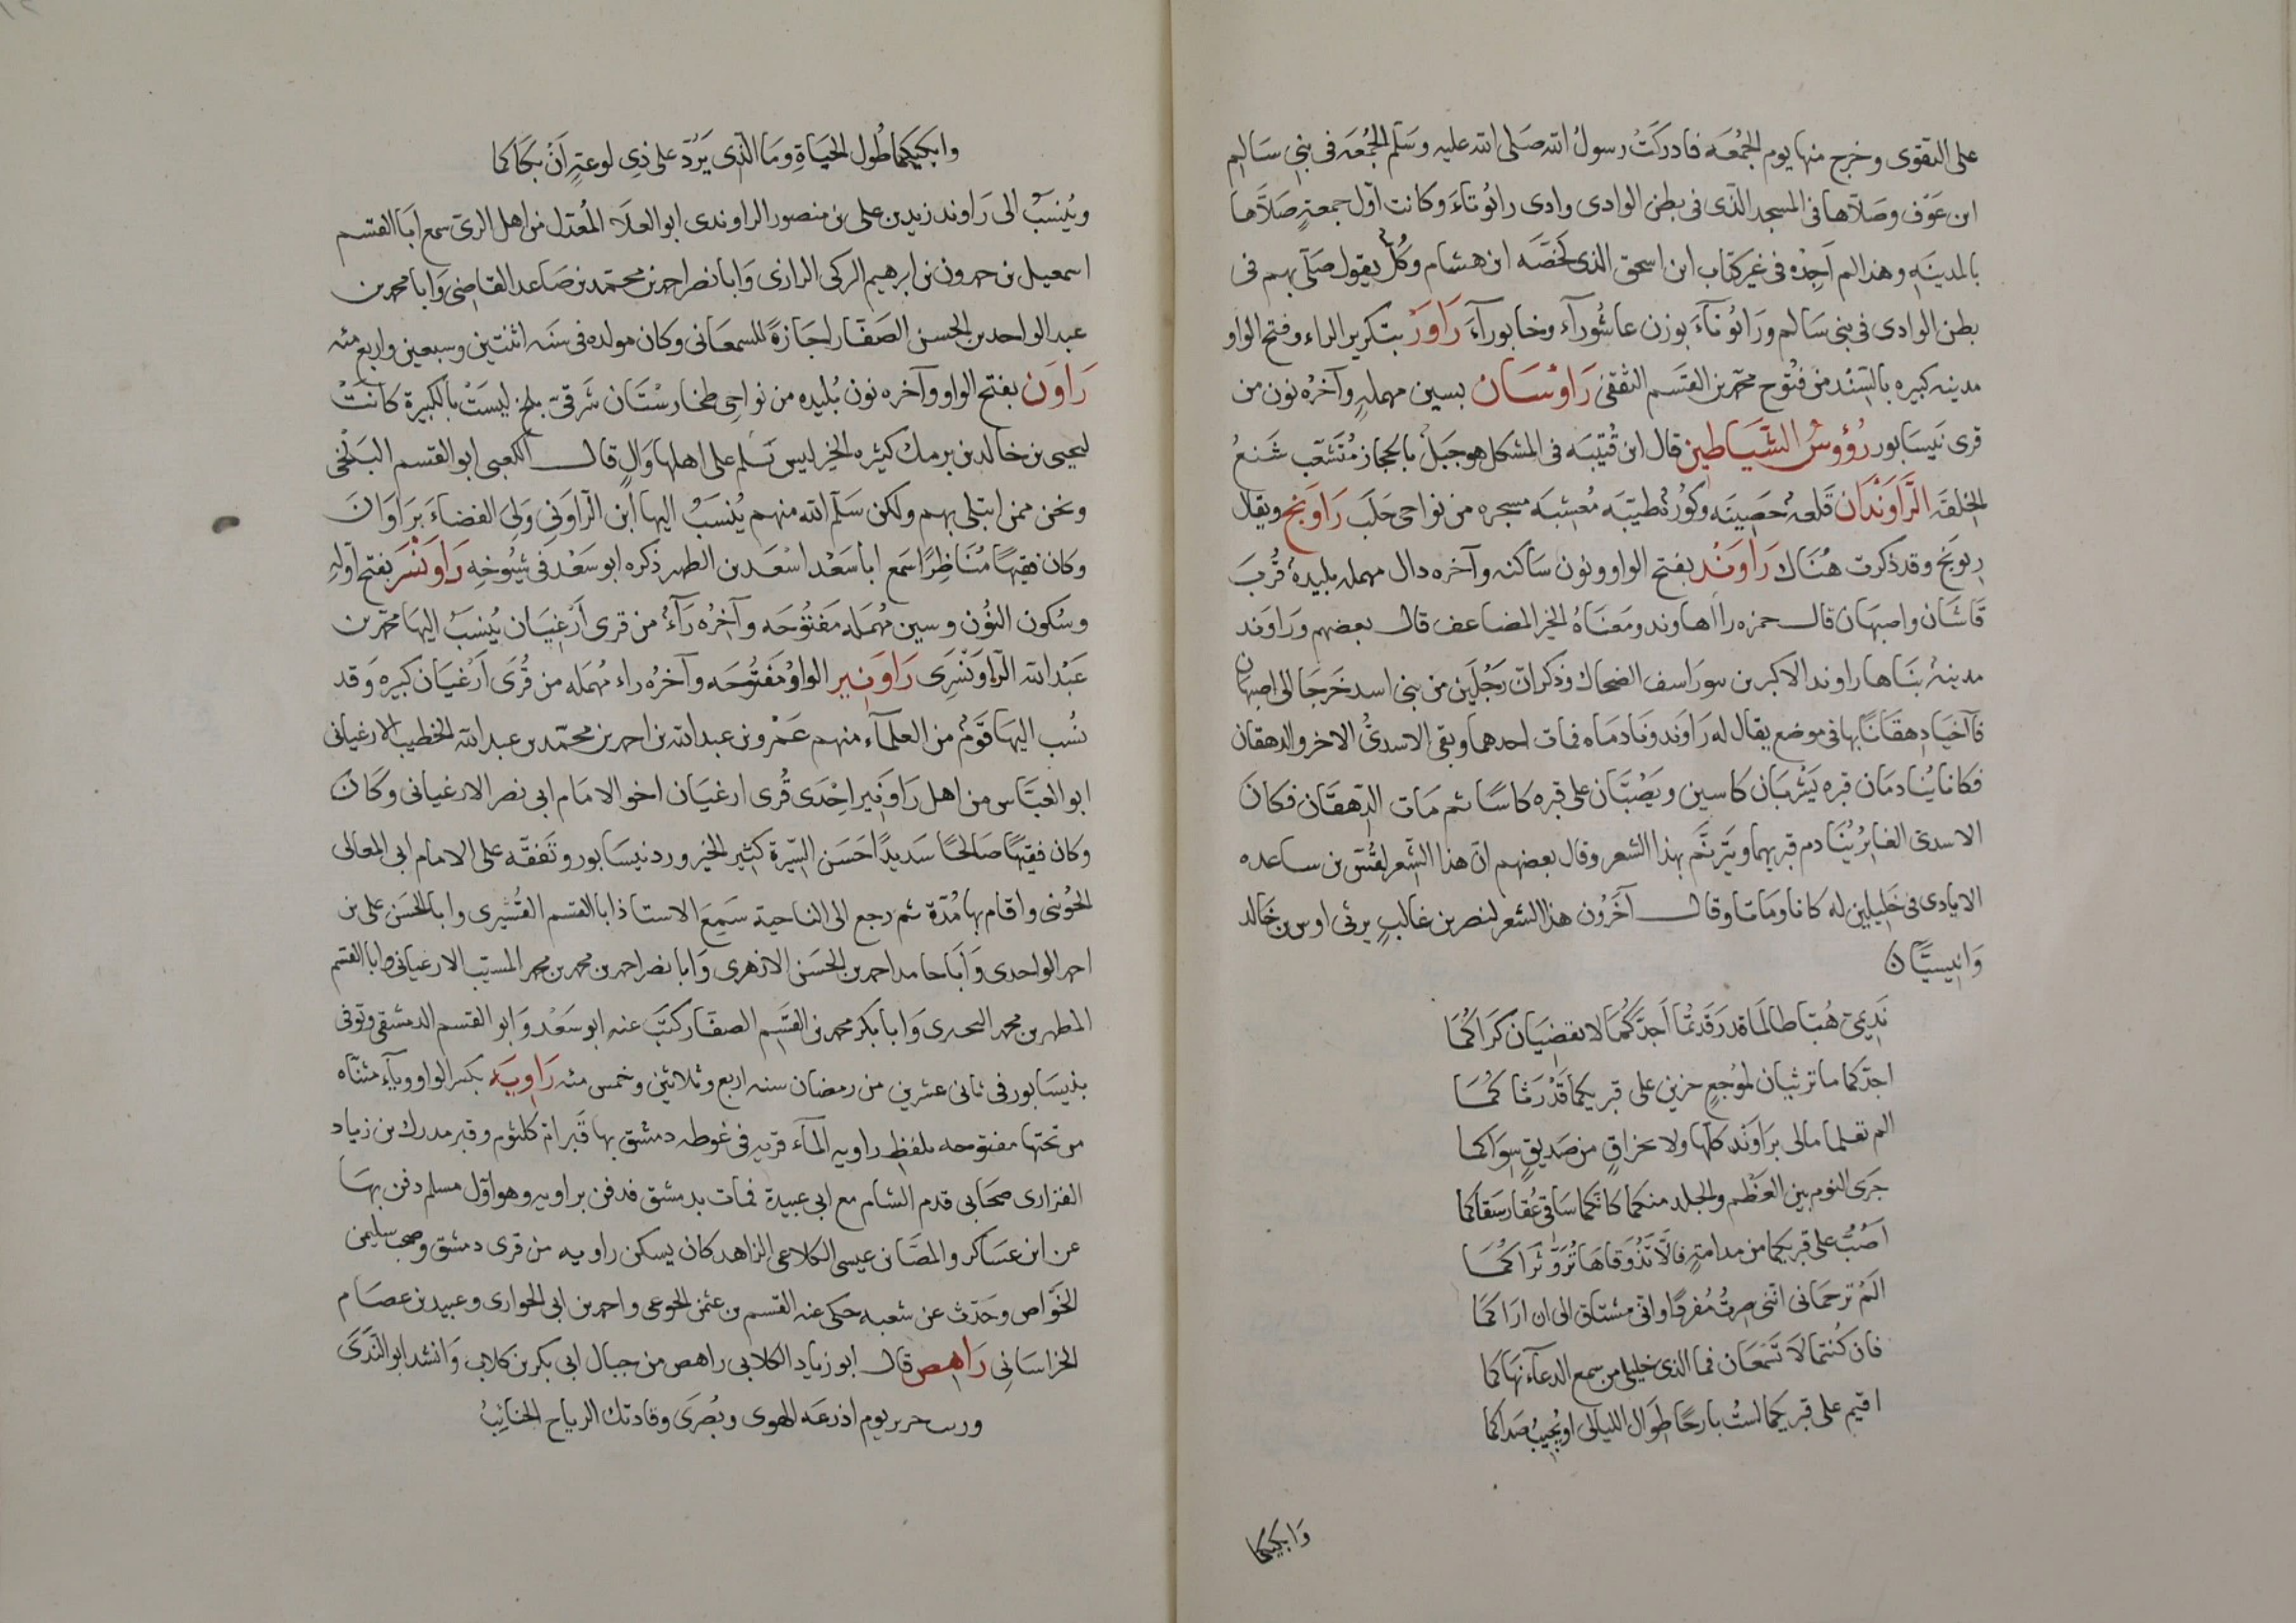 على التقوى وخرج منها يوم الجُمْعَه فادركَتْ رسولَ الله صَلى الله عليه وسَلّم الجُمُعَه فى بنى سَالم
ابن عَوْف وصَلّاها فى المسجد الذّى فى بطن الوادى وادى رانُوناءَ وكانت اوّل جمعةٍ صَلّاها
بالمدينَهِ وهذا لم اَجِدْه فى غير كتاب ابن اسحق الذى لَخّصَه ابن هشام وكُلٌّ يقول صَلّى بهم فى
بطن الوادى فى بنى سَالم ورَانُونآءَ بوزن عاشُورآءَ وخابورآءَ رَاوَرْ بتكرير الراء وفتح الواو
مدينه كبيره بالسِّنْد من فتُوح محمّد بن القَسَم الثقفى رَاوْسَان بسين مهملهٍ وآخرُه نون من
قرى نَيسَابور رُؤوسُ الشّيَاطينِ قال ابن قُتيْبَه فى المشكل هو جَبَلٌ بالحجاز مُتَشَعّب شَنعُ
الخلقَه الرَّاوَنْدَان قَلعهٌ حَصِينَه وكورُهٌ طيّبَه مُعشِبَه مسجره من نواحى حَلَب رَاوَنج ويقال
رِيوَنج وقد ذكرت هُنَاك رَاوَنْد بفتح الواو ونون سَاكنه وآخره دال مهمله بليدهٌ قُربَ
قَاشَان واصبهَان قال حمزه راأهاوند ومَعْنَاهُ الخير المضاعف قال بعضهم ورَاوَند
مدينهٌ بنَاها راوند الاكبر بن بيوراسف الضحاك وذكر انّ رَجُلَين من بنى اسد خَرَجَا الى اصبهان
فآخيَا دِهقَانًا بها فى موضع يقال له رَاوَند ونَادمَاه فمات احدهما وبقى الاسدىُّ الاخر والدهقان
فكانا يُنادمَان قبره يَشْربَان كاسين ويَصُبَّان على قبره كاسًا ثم مَات الدِّهقَان فكان
الاسدىّ الغابرُ يُنَادم قبريهما ويَترنَّم بهذا الشعر وقال بعضهم انّ هذا الشِّعر لقُسّ بن ساعده
الايادى فى خَلِيلين له كانا ومَاتا وقال آخَرُون هذا الشعر لنصر بن غالبٍ يرثى اوس بن خَالد
وَانِيسًّان
نَدِيمىّ هُبّا طالمَا قد رَقَدتُمَا اَجِدَّكُمَا لا تقضيَان كَرَاكُمَا
اجدّكما ما ترثيَان لمُوجعٍ حزينٍ على قبريكما قَدْ رَثاكُمَا
الم تعلما مالى برَاوَند كلّها ولا بخزاقٍ من صَديقٍ سِوَاكما
جَرَى النوم بين العَظْم والجلد منكما كانّكما سَاقى عُقار سَقَاكما
اَصُبُّ على قبريكما من مدامةٍ فالّا تَذُوقاهَا تُرَوِّ ثرَاكُمَا
الَمْ ترحمَانى انّنى صِرتُ مُفردًا وانّى مشتاق الى ان ارَاكمَا
فان كُنتما لَا تَسْمَعَان فما الذى خليلى من سمع الدعآء نهَاكما
اقيم على قبريكما لستُ بارحًا طوَال الليالى او يُجِيبُ صَدَاكما
وَابكيكما
وابكيكما طُول الحيَاةِ ومَا الّذى يَرُدّ على ذى لوعةٍ اَنْ بكَاكما
ويُنسَبُ الى رَاوند زيد بن على بن منصور الراوندى ابو العلَاء المُعدّل من اهل الرىّ سمع ابَا القسم
اسمعيل بن حمدون بن ابرهيم الركى الرازى وَابا نصر احمد بن محمّد بن صَاعد القاضى وَابا محمد بن
عبد الواحد بن الحسن الصَفّار اجَازةً للسمعانى وكان مولده فى سنَه اثنتين وسبعين واربع مئه
رَاوَن بفتح الواو وآخره نون بُليده من نواحى طخارسْتَان شَرقىّ بلخ ليسَتْ بالكبيرة كانَتْ
ليحيى بن خالد بن برمك كثيره الخير ليس يَسْلم على اهلها وَالٍ قال الكعبى ابو القسم البَلْخى
ونحن ممن ابتلى بهم ولكن سَلّم الله منهم يُنسَبُ اليها ابن الرّاوَنى وَلِىَ القضاءَ برَاوَانَ
وكان فقيهًا مُنَاظِرًا سَمع ابا سَعْد اسْعَد بن الطهير ذكره ابو سَعْد فى شيُوخِه رَاوَنْسَر بفتح اوّلهِ
وسُكون النُون وسين مُهمَله مَفتُوحَه وآخِرُه رَاءٌ من قرى اَرْغِيَان يُنسَبُ اليهَا محمّد بن
عَبْد الله الرّاوَنْسَرِى رَاوَنِير الواوُ مَفتُوحَه وآخرُه راء مُهمَله من قُرَى اَرْغيَان كبيره وَقد
نسُب اليهَا قَوْمٌ من العلمآء منهم عَمْرو بن عبد الله بن احمد بن محمّد بن عبد الله الخطيب الارغيانى
ابو العبّاس من اهل رَاوَنِير احْدى قُرى ارغيَان اخو الامَام ابى نصر الارغيانى وكَان
وكان فقيهًا صَالحًا سَديدًا حَسَن السِّيرة كثِير الخير ورد نيسَابور وتَفقّه على الامام ابى المعالى
الجُوَينى واقام بها مُدّة ثم رجع الى الناحية سَمِعَ الاستاذ ابا القسم القُشيرى وابا الحَسَن على بن
احمد الواحدى وَابَا حامد احمد بن الحَسَن الازهرى وَابا نصر احمد بن محمد بن محمد المسيّب الارغيانى وابا القسم
المطهر بن محمد البحرى وَابا بكر محمد بن القَسَم الصفّار كتَبَ عنه ابو سَعْد وَابو القسم الدمشقى وتوفى
بنيسَابور فى ثانى عشرين من رمضان سنه اربع وثلاثين وخمس مئه رَاوِيَه بكسر الواو ويآءٍ مثنّاه
من تحتها مفتوحه بلفظ راويه المآء قريه فى غوطه دمشق بها قَبر امّ كلثوم وقبر مدرك بن زياد
الفزارى صحَابى قدم الشام مع ابى عبيدة فمات بدمشق فدفن براويه وهو اوّل مسلم دفن بهَا
عن ابن عسَاكر والمصَّان عيسى الكلاعى الزاهد كان يسكن راويه من قرى دمشق وصحب سليمن
الخوّاص وحَدّث عن شعبه حكى عنه القسم بن عثمن الجوعى واحمد بن ابى الحوارى وعبيد بن عصَام
الخراسَانى رَاهِص قال ابو زياد الكلابى راهص من جبال ابى بكر بن كلاب وَانشد ابو النّدَى
ورب حرير يوم اذرعَه الهوى وبُصْرَى وقادتك الرياح الجنائِبُ